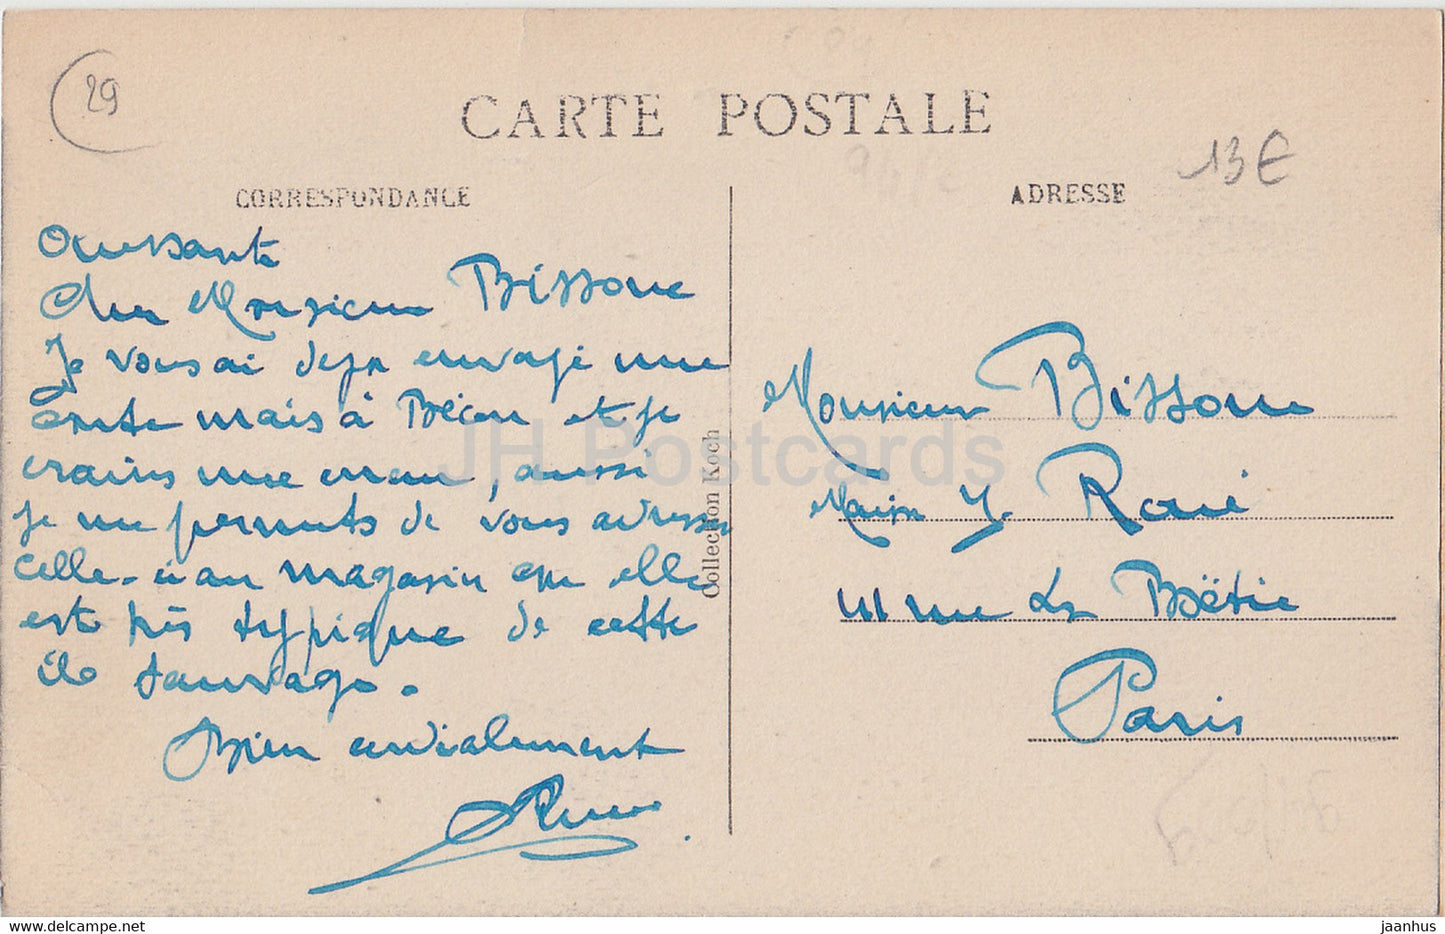 29
CARTE POSTALE
13€
CORRESPONDANCE
ADRESSE
Ouessant
Cher Monsieur Bissone
Je vous ai deja envoyé une
carte mais à Bécon et je
crains une erreur, aussi
je me permets de vous adresser
celle-ci au magasin car elle
est très typique de cette
île sauvage.
Bien cordialement
Collection Koch
Monsieur Bissone
Maison Y.
111 rue La Bëtie
Paris
JH Postcards
jaanhus